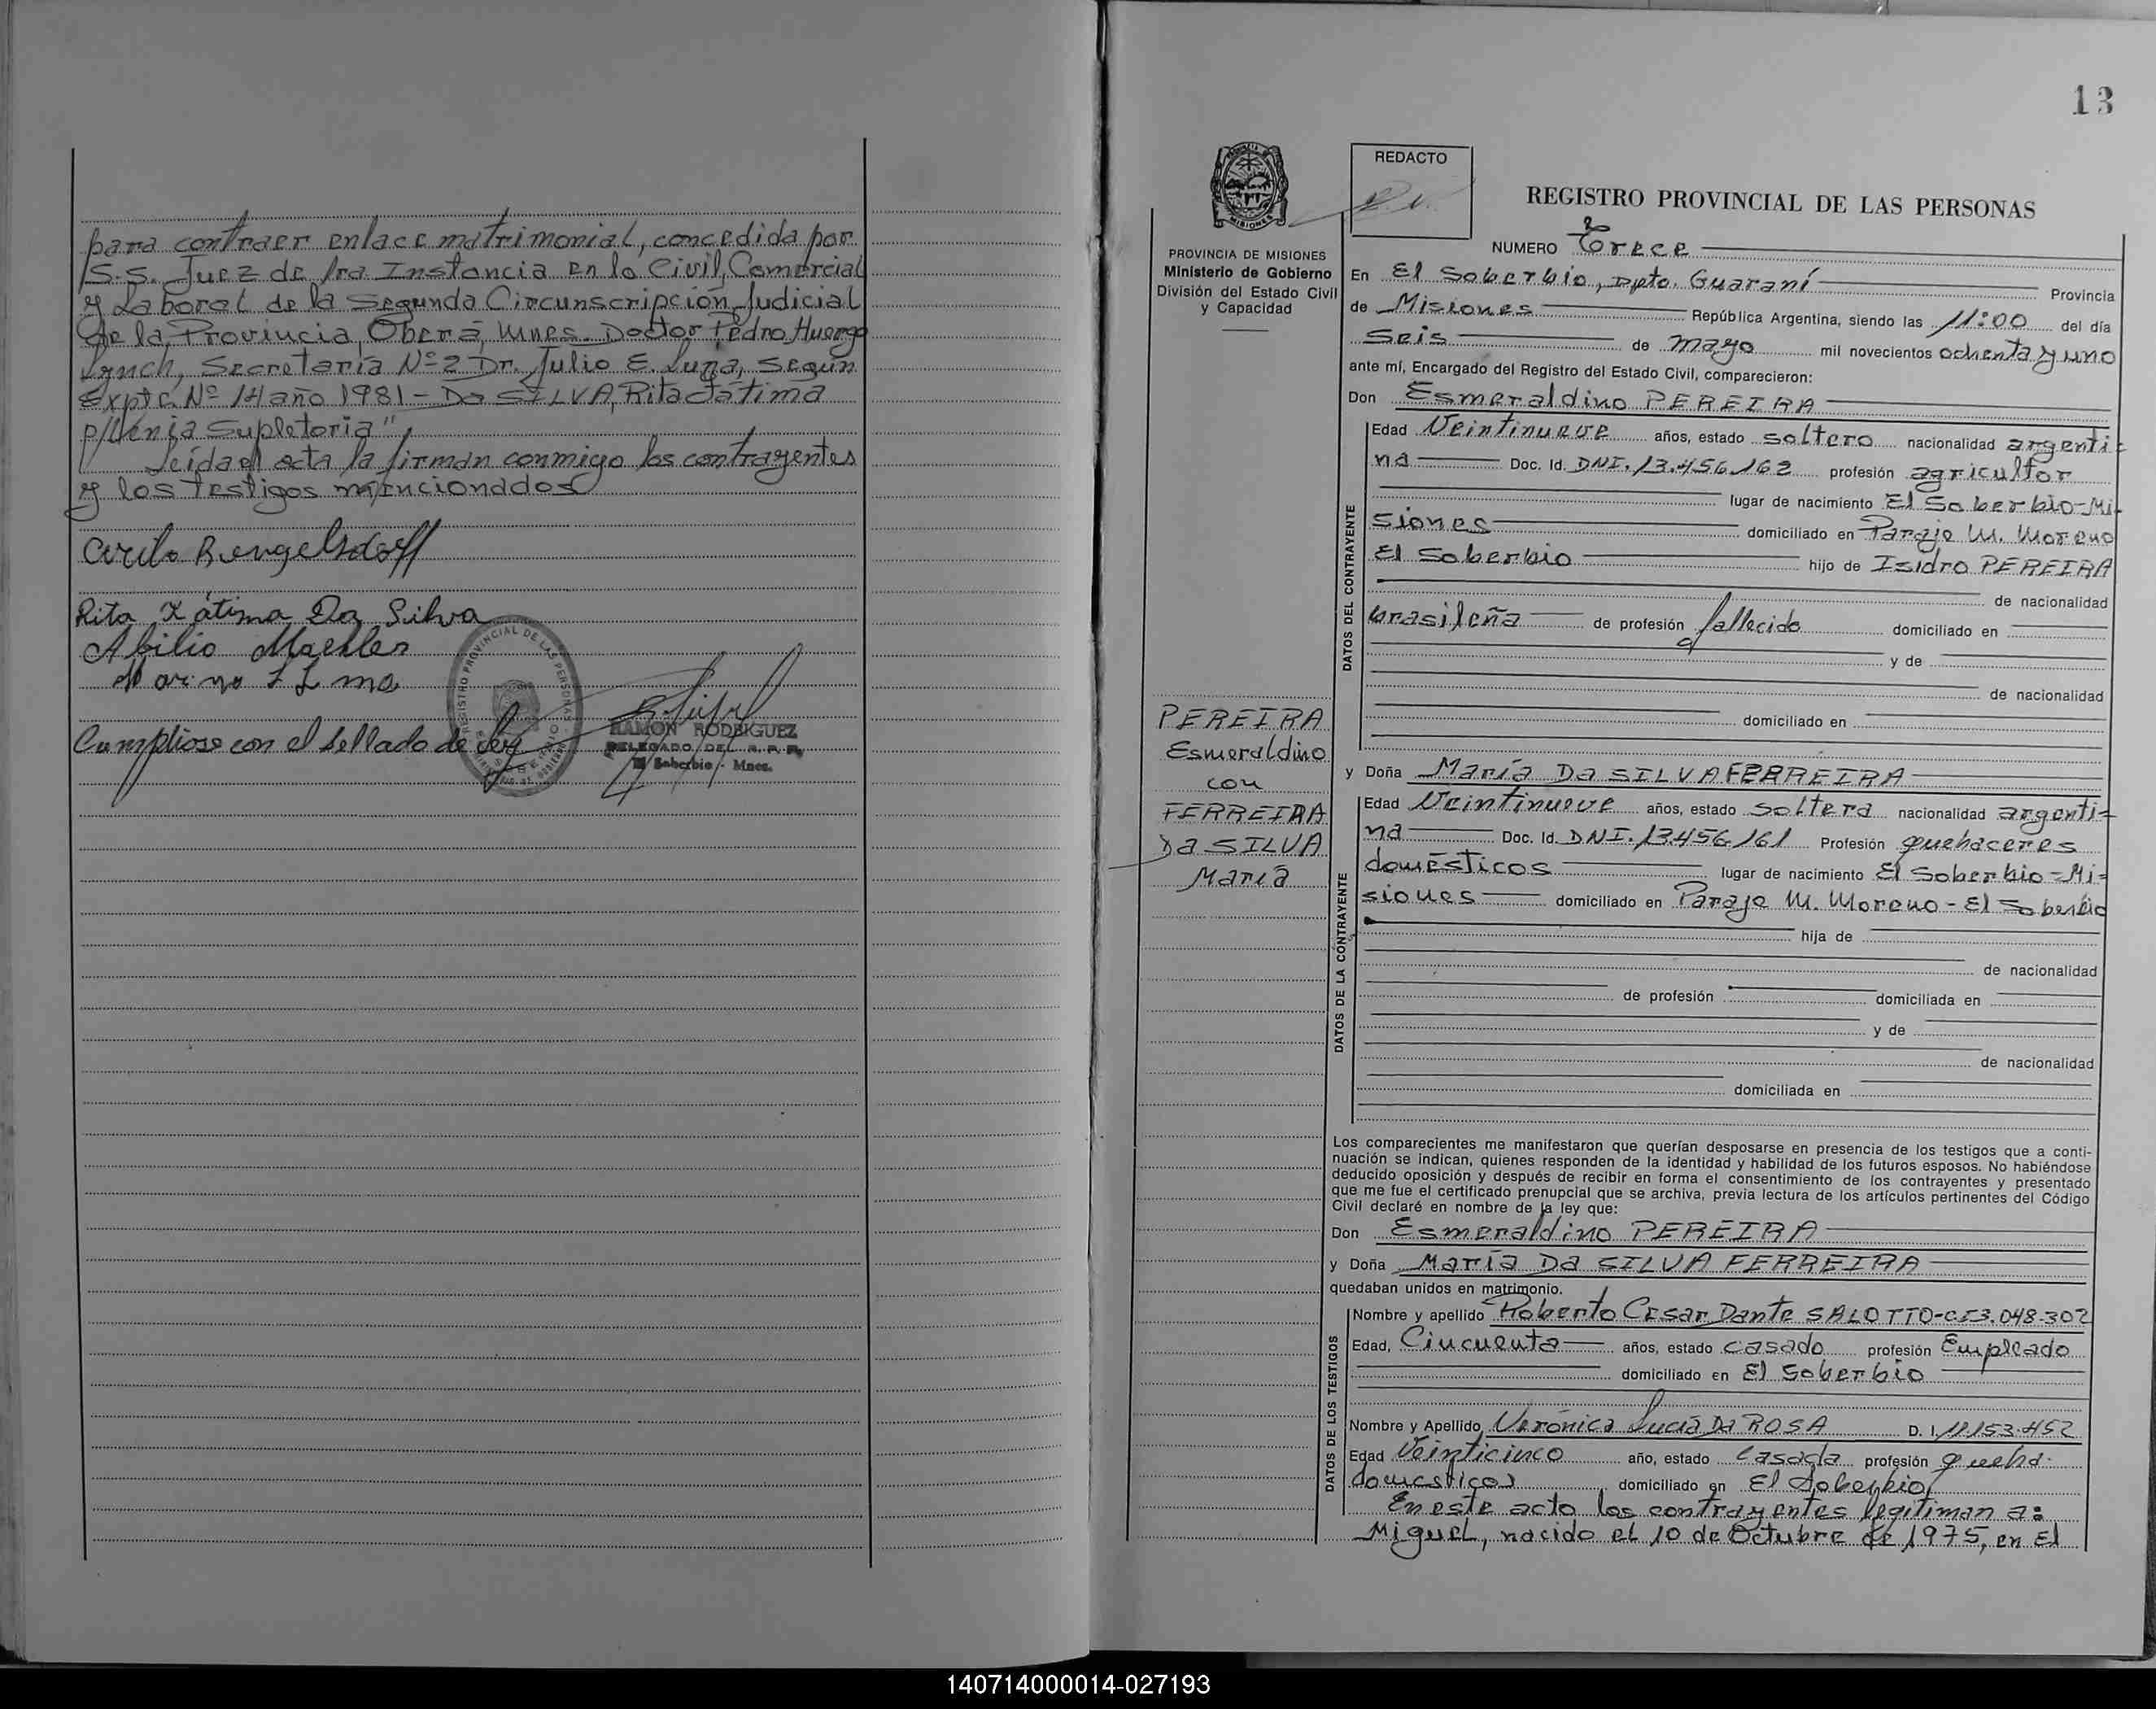 para contraer enlace matrimonial, concedida por
S.S. Juez de 1ra Instancia en lo Civil, Comercial
y Laboral de la Segunda Circunscripción Judicial
de la Provincia, Oberá, Mnes. Doctor Pedro Huergo
Lynch, Secretaría Nº 2 Dr. Julio E. Luna, según
Expte. Nº 14 año 1981 - Da SILVA, Rita Fátima
p/Venia Supletoria"
Leída el acta la firman conmigo los contrayentes
y los testigos mencionados
Cirilo Rengelsdorff
Rita Fátima Da Silva
Abilio
Marino Lima
Cumpliose con el sellado de Ley
REGISTRO PROVINCIAL DE LAS PERSONAS
RAMON RODRIGUEZ
DELEGADO DEL R.P.P.
El Soberbio - Mnes.
13
REDACTO
REGISTRO PROVINCIAL DE LAS PERSONAS
NUMERO Trece
PROVINCIA DE MISIONES
Ministerio de Gobierno
División del Estado Civil
y Capacidad
En El Soberbio, Dpto. Guaraní Provincia
de Misiones República Argentina, siendo las 11:00 del día
Seis de mayo mil novecientos ochenta y uno
ante mí, Encargado del Registro del Estado Civil, comparecieron:
Don Esmeraldino PEREIRA
DATOS DEL CONTRAYENTE
Edad Veintinueve años, estado soltero nacionalidad argenti=
na Doc. Id. DNI. 13.456.162 profesión agricultor
lugar de nacimiento El Soberbio-Mi-
siones domiciliado en Paraje M. Moreno
El Soberbio hijo de Isidro PEREIRA
de nacionalidad
brasileña de profesión fallecido domiciliado en
y de
de nacionalidad
domiciliado en
PEREIRA
Esmeraldino
con
FERREIRA
Da SILVA
María
y Doña María Da SILVA FERREIRA
DATOS DE LA CONTRAYENTE
Edad Veintinueve años, estado soltera nacionalidad argenti=
na Doc. Id. DNI. 13.456.161 Profesión quehaceres
domésticos lugar de nacimiento El Soberbio=Mi=
siones domiciliado en Paraje M. Moreno - El Soberbio
hija de
de nacionalidad
de profesión domiciliada en
y de
de nacionalidad
domiciliada en
Los comparecientes me manifestaron que querían desposarse en presencia de los testigos que a conti-
nuación se indican, quienes responden de la identidad y habilidad de los futuros esposos. No habiéndose
deducido oposición y después de recibir en forma el consentimiento de los contrayentes y presentado
que me fue el certificado prenupcial que se archiva, previa lectura de los artículos pertinentes del Código
Civil declaré en nombre de la ley que:
Don Esmeraldino PEREIRA
y Doña María Da SILVA FERREIRA
quedaban unidos en matrimonio.
DATOS DE LOS TESTIGOS
Nombre y apellido Roberto Cesar Dante SALOTTO-CI3.048.302
Edad, Cincuenta años, estado casado profesión Empleado
domiciliado en El Soberbio
Nombre y Apellido Verónica Lucía Da ROSA D. I. 11.153.452
Edad Veinticinco año, estado casada profesión queha-
domesticos domiciliado en El Soberbio
En este acto los contrayentes legitiman a:
Miguel, nacido el 10 de Octubre de 1975, en El
140714000014-027193